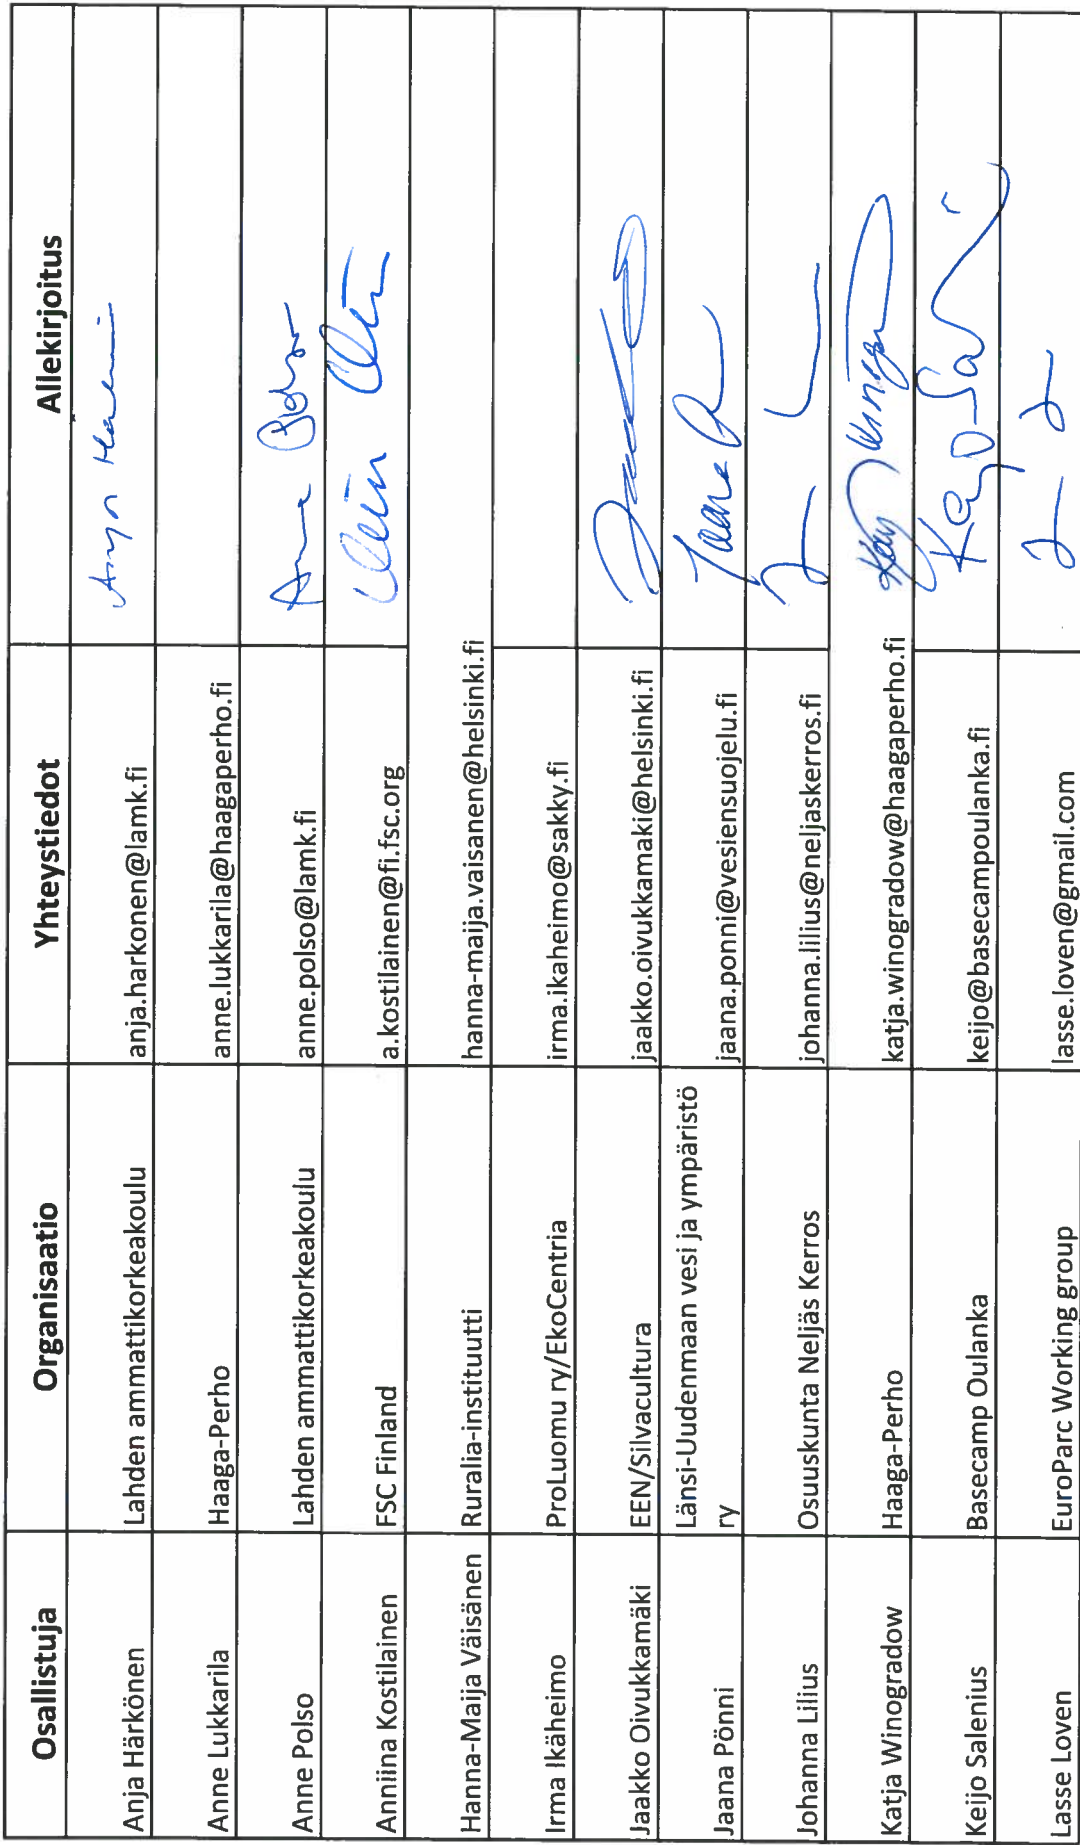 Osallistuja Organisaatio Yhteystiedot Allekirjoitus
Anja Härkönen Lahden ammattikorkeakoulu anja.harkonen@lamk.fi
Anne Lukkarila Haaga-Perho anne.lukkarila@haagaperho.fi
Anne Polso Lahden ammattikorkeakoulu anne.polso@lamk.fi Anne Polso
Anniina Kostilainen FSC Finland a.kostilainen@fi.fsc.org
Hanna-Maija Väisänen Ruralia-instituutti hanna-maija.vaisanen@helsinki.fi
Irma Ikäheimo ProLuomu ry/EkoCentria irma.ikaheimo@sakky.fi
Jaakko Oivukkamäki EEN/Silvacultura jaakko.oivukkamaki@helsinki.fi
Länsi-Uudenmaan vesi ja ympäristö
Jaana Pönni ry jaana.ponni@vesiensuojelu.fi Jaana P
Johanna Lilius Osuuskunta Neljäs Kerros johanna.lilius@neljaskerros.fi
Katja Winogradow Haaga-Perho katja.winogradow@haagaperho.fi
Keijo Salenius Basecamp Oulanka keijo@basecampoulanka.fi
Lasse Loven EuroParc Working group lasse.loven@gmail.com